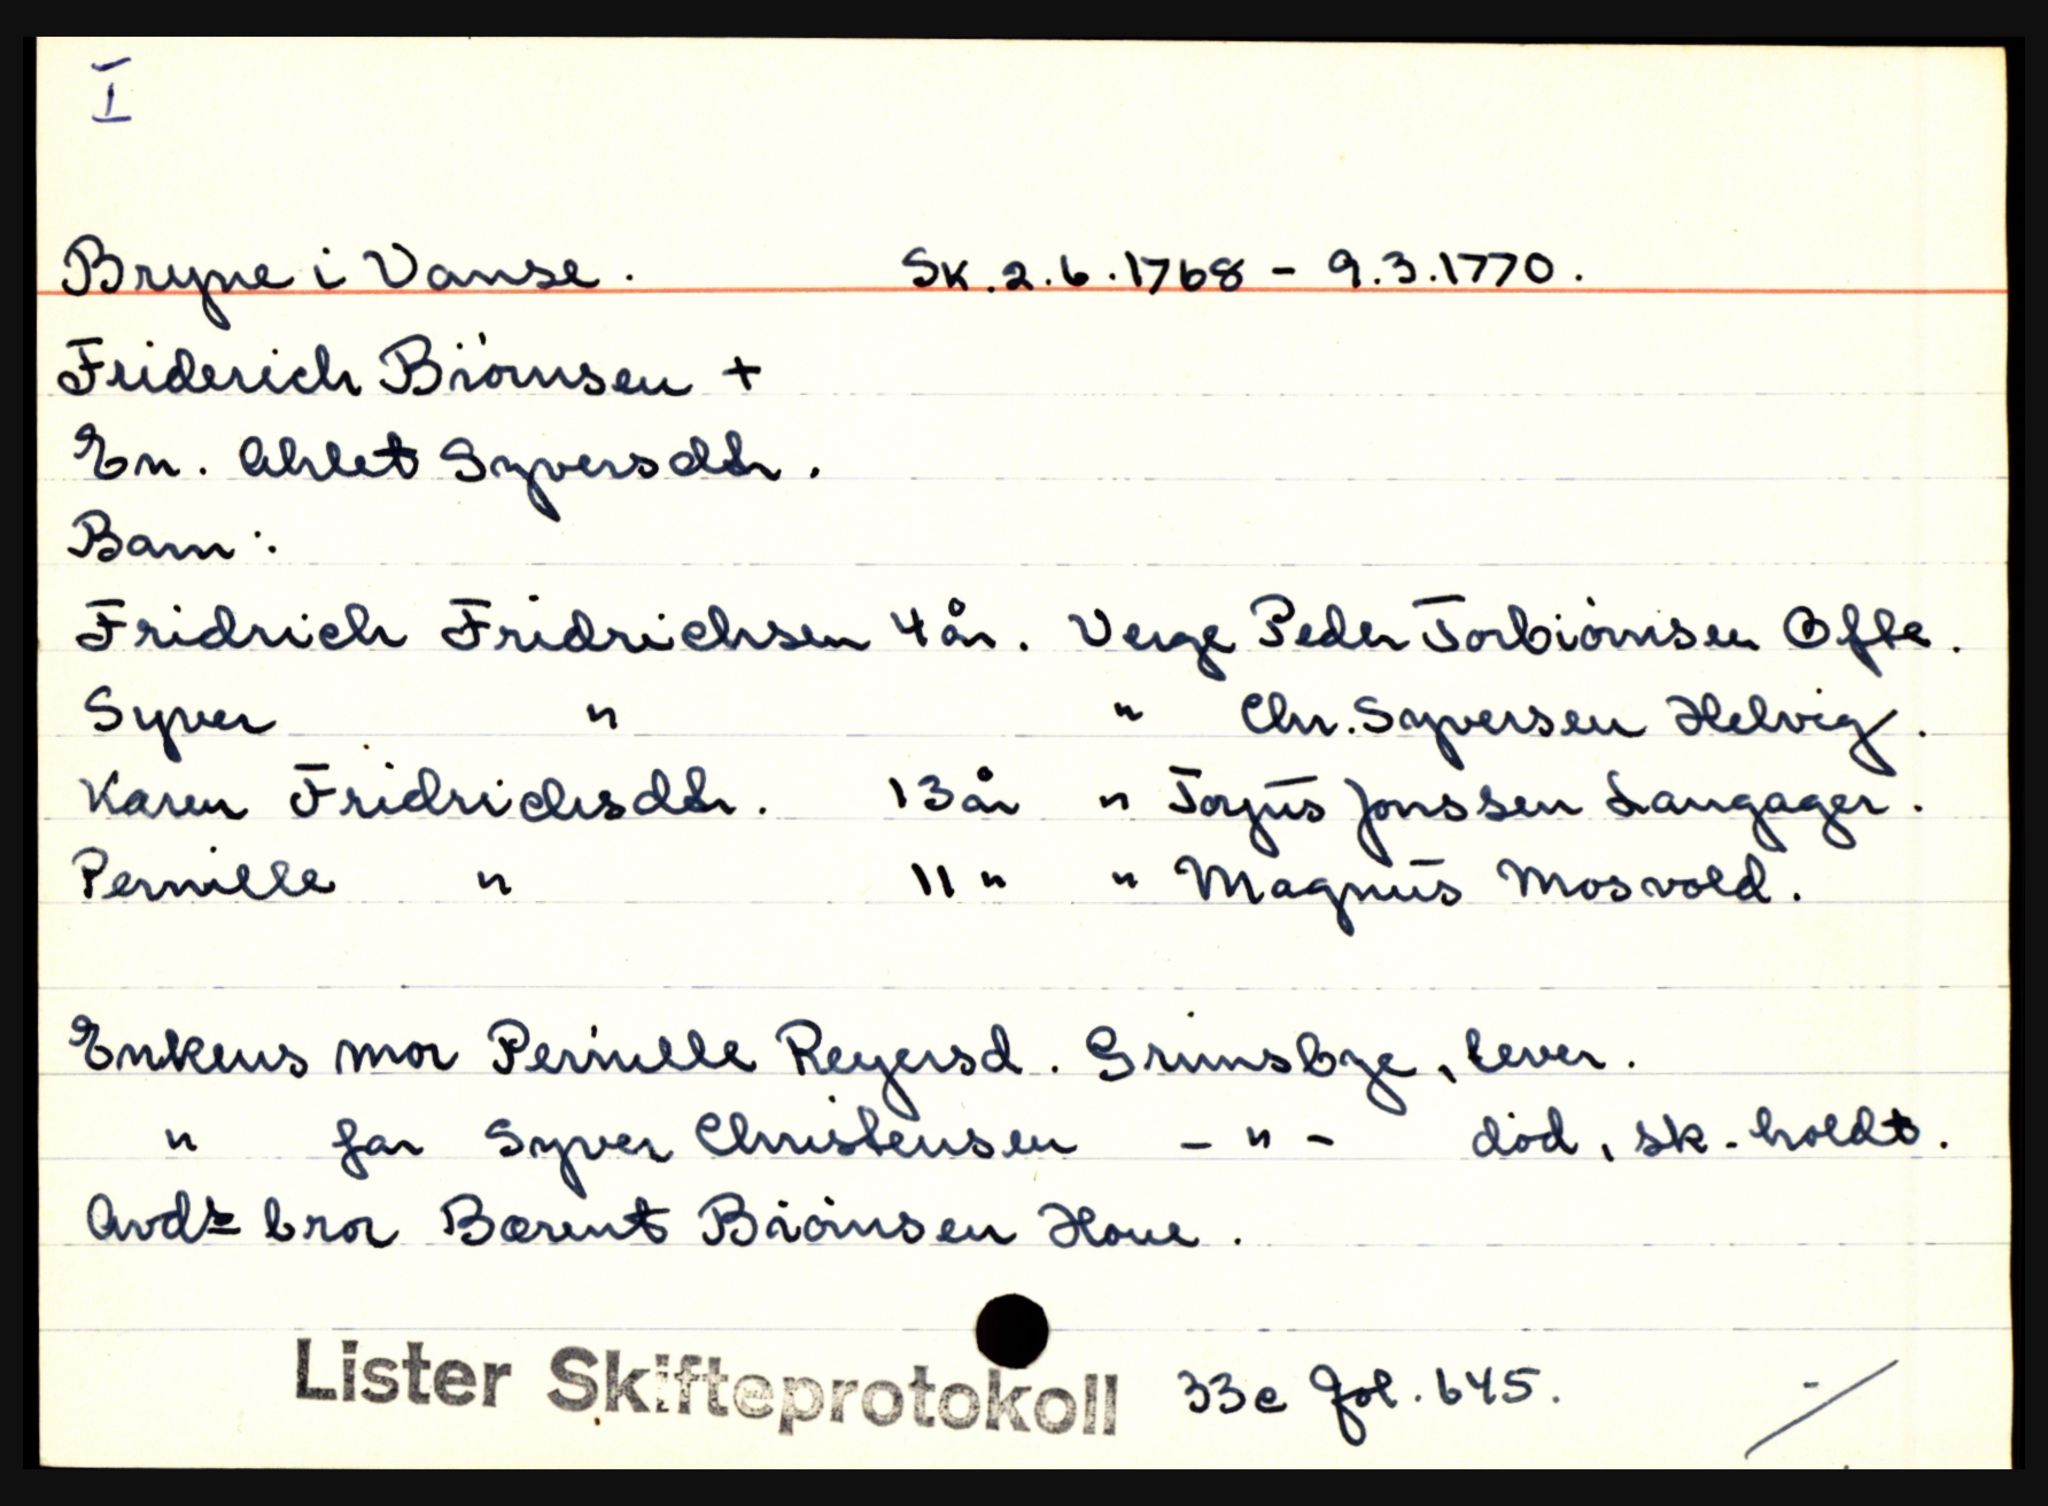 I
Bryne i Vanse. Sk. 2.6.1768 - 9.3.1770.
Friderich Biörnsen +
En. Ahlet Syversdtr.
Barn:
Fridrich Fridrichsen 4 år. Verge Peder Torbiörnsen Ofte.
Syver " " Chr. Syversen Helvig.
Karen Fridrichsdtr. 13 år " Torjus Jonssen Langager.
Pernille " 11 " " Magnus Mosvold.
Enkens mor Pernille Reyersd. Grimsbye, lever.
" far Syver Christensen - " - död, sk. holdt.
Avdr bror Bærent Biörnsen Houe.
Lister Skifteprotokoll 33c fol. 645.